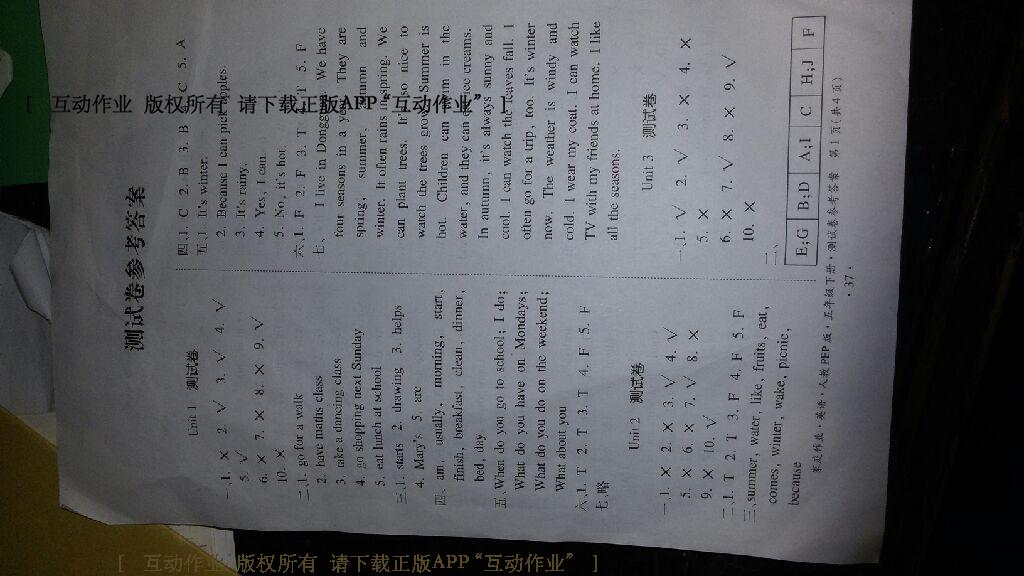 测试卷参考答案
Unit 1 测试卷
一、1. × 2. √ 3. √ 4. √
5. √
6. × 7. × 8. × 9. √
10. ×
二、1. go for a walk
2. have maths class
3. take a dancing class
4. go shopping next Sunday
5. eat lunch at school
三、1. starts 2. drawing 3. helps
4. Mary's 5. are
四、am, usually, morning, start,
finish, breakfast, clean, dinner,
bed, day
五、When do you go to school; I do;
What do you have on Mondays;
What do you do on the weekend;
What about you
六、1. T 2. T 3. T 4. F 5. F
七、略
Unit 2 测试卷
一、1. × 2. × 3. √ 4. √
5. × 6. × 7. √ 8. ×
9. × 10. √
二、1. T 2. T 3. F 4. F 5. F
三、summer, water, like, fruits, eat,
comes, winter, wake, picnic,
because
四、1. C 2. B 3. B 4. C 5. A
五、1. It's winter.
2. Because I can pick apples.
3. It's rainy.
4. Yes, I can.
5. No, it's hot.
六、1. F 2. F 3. T 4. T 5. F
七、 I live in Dongguan. We have
four seasons in a year. They are
spring, summer, autumn and
winter. It often rains in spring. We
can plant trees. It's so nice to
watch the trees grow. Summer is
hot. Children can swim in the
water, and they can eat ice creams.
In autumn, it's always sunny and
cool. I can watch the leaves fall. I
often go for a trip, too. It's winter
now. The weather is windy and
cold. I wear my coat. I can watch
TV with my friends at home. I like
all the seasons.
Unit 3 测试卷
一、1. √ 2. √ 3. × 4. ×
5. ×
6. × 7. √ 8. × 9. √
10. ×
二、
E;G B;D A;I C H;J F
家庭作业·英语·人教PEP版·五年级下册·测试卷参考答案 第1页(共4页)
·37·
[ 互动作业 版权所有 请下载正版APP“互动作业” ]
[ 互动作业 版权所有 请下载正版APP“互动作业” ]